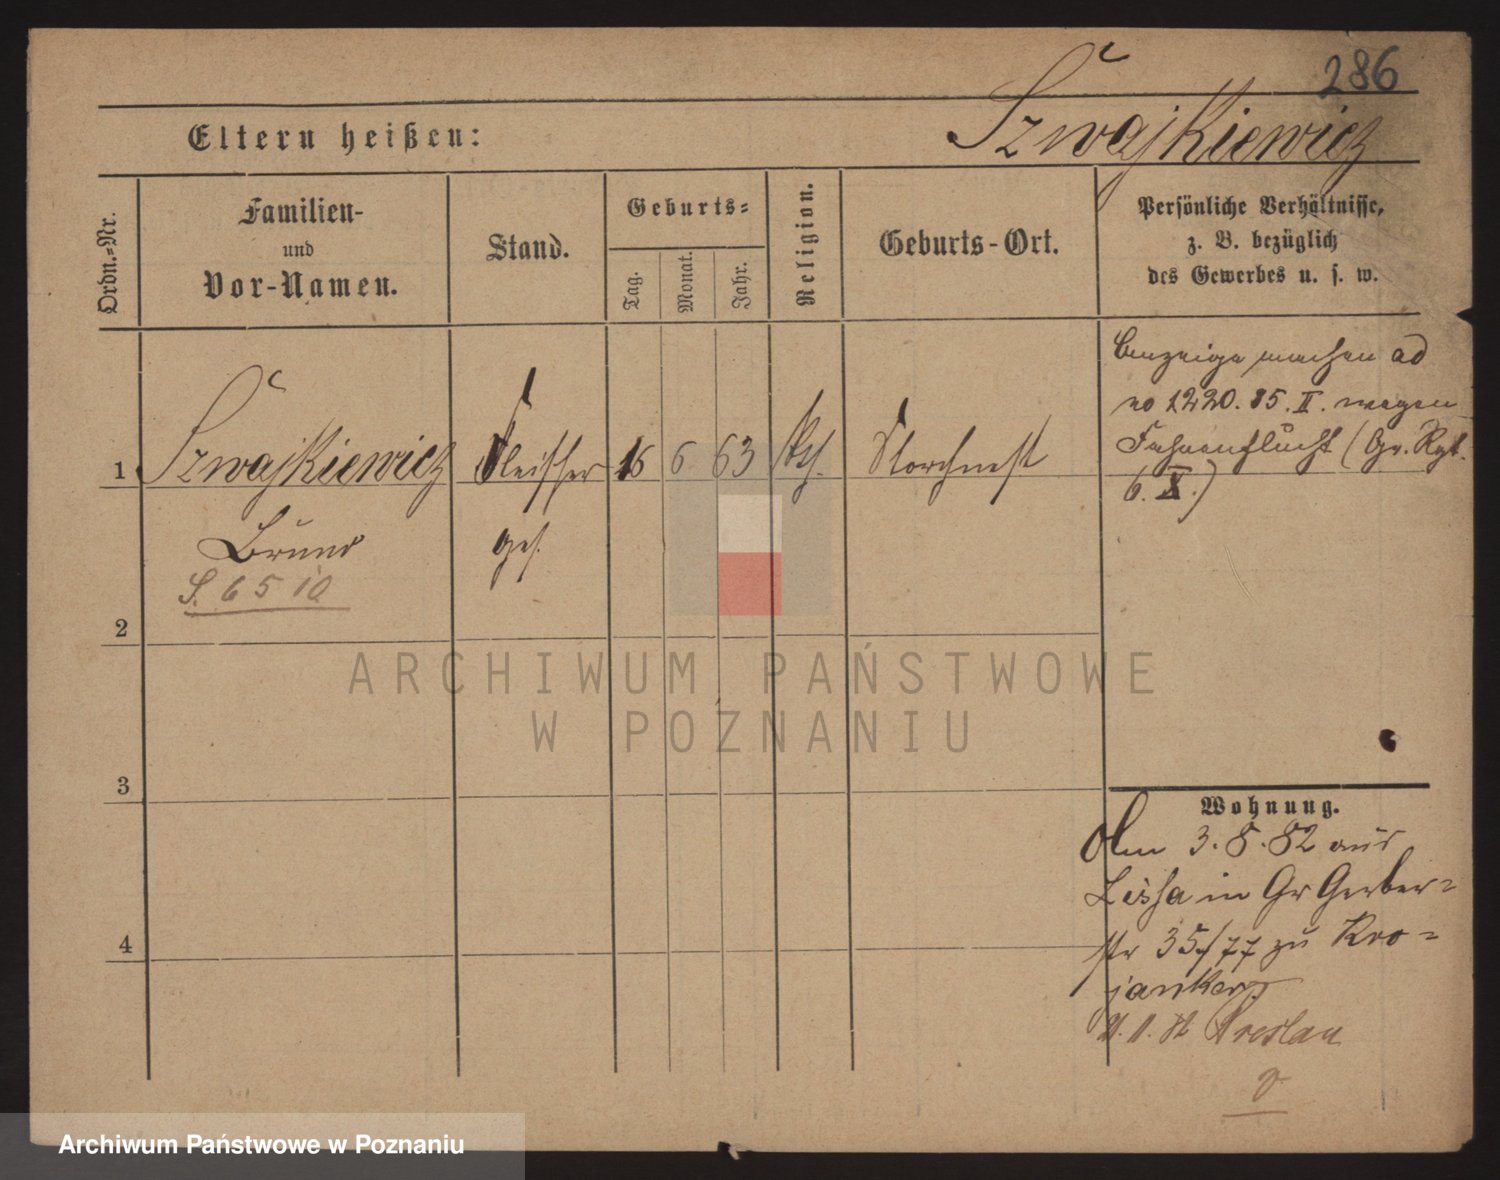 286
Eltern heißen:
Szwajkiewicz
Ordn.-Nr.
Familien-
und
Vor-Namen.
Stand.
Geburts-
Tag.
Monat.
Jahr.
Religion.
Geburts-Ort.
Persönliche Verhältnisse,
z. B. bezüglich
des Gewerbes u. s. w.
1
Szwajkiewicz
Fleischer
16
6
63
Storchnest
Anzeige machen ad
no 1220. 85. II. wegen
Fahnenflucht (Gr. Rgt.
6. X.)
Bruno
ges.
S. 6510
2
ARCHIWUM PAŃSTWOWE
W POZNANIU
3
Wohnung.
Am 3.8.82 aus
Lissa in Gr Gerber-
str 35/77 zu Kro-
janker
Breslau
4
Archiwum Państwowe w Poznaniu